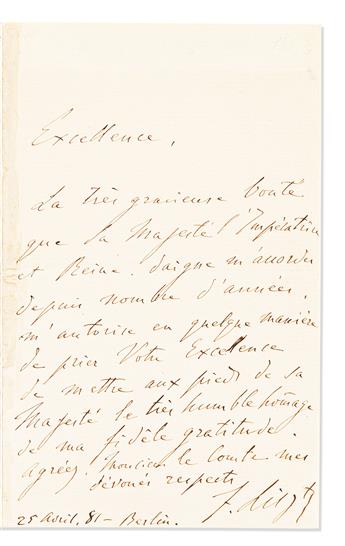 Excellence,
La très gracieuse bonté
que Sa Majesté l'Impératrice
et Reine, daigne m'accorder
depuis nombre d'années,
m'autorise en quelque manière
de prier Votre Excellence
de mettre aux pieds de sa
Majesté le très humble homage
de ma fidèle gratitude.
agréez, Monsieur le Comte mes
dévoués respects
F. Liszt
25 Avril, 81 - Berlin.